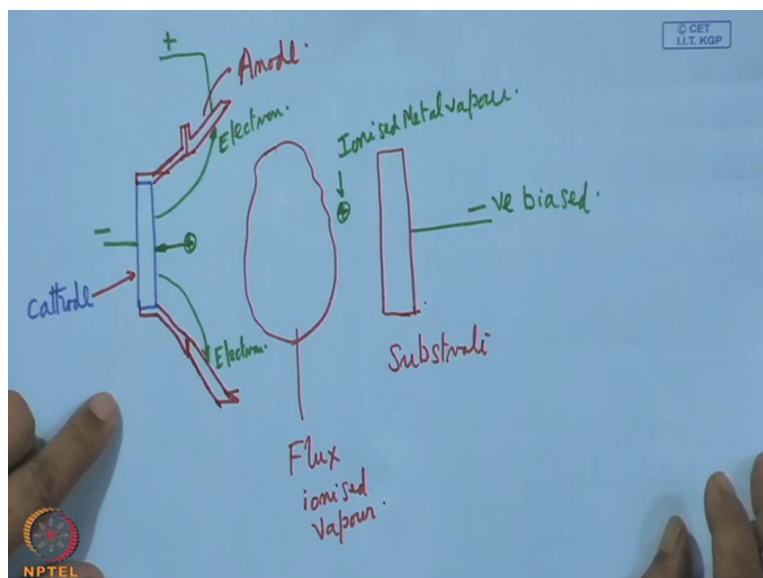 © CET
I.I.T. KGP
+
Anode.
Electron.
Ionised Metal vapour.
-
-ve biased.
Cathode
Electron.
Substrate
Flux
ionised
vapour.
NPTEL